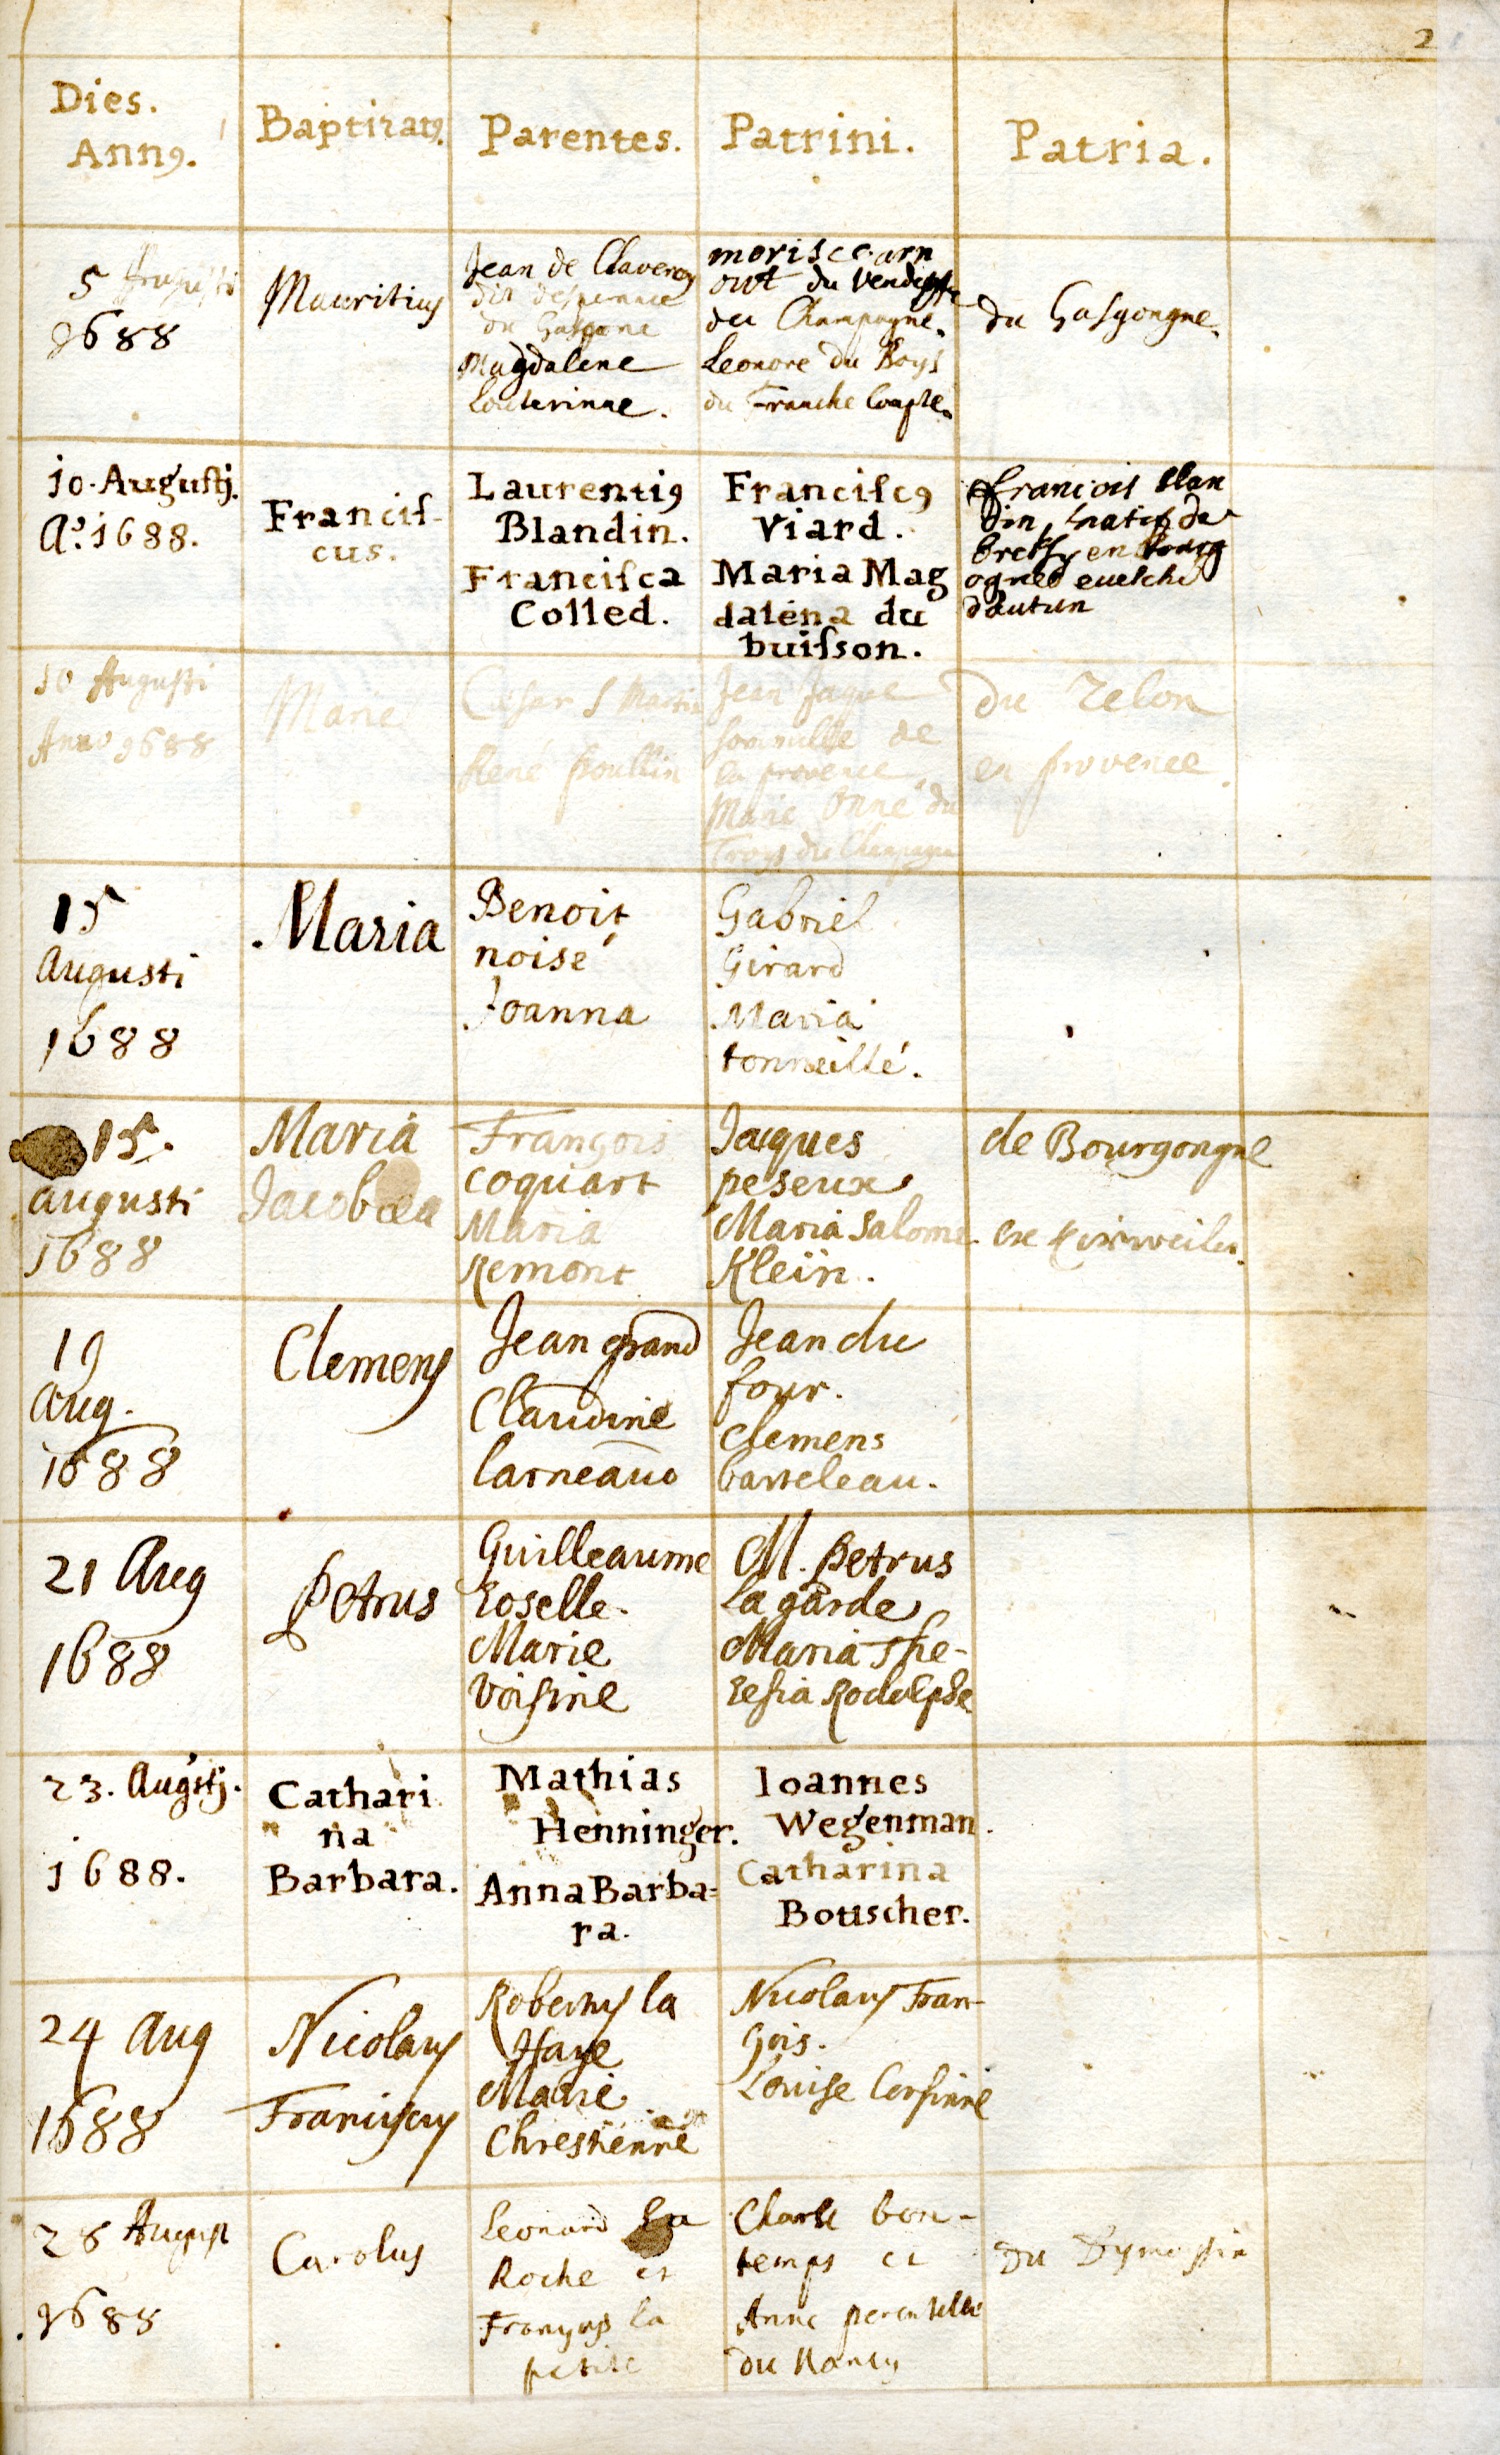 2
Dies.
Annꝯ.
Baptizatꝯ.
Parentes.
Patrini.
Patria.
5 Augusti
1688
Mauritius
Jean de Claverey
dit
du Gascone
Magdalene
Louterinne.
moris
out du
du Champagne.
Leonore du Boys
du Franche Compte.
du Gasgongne.
10. Augustj.
Aº. 1688.
Francis-
cus.
Laurentiꝯ
Blandin.
Francisca
Colled.
Franciscꝯ
Viard.
Maria Mag
dalena du
buisson.
francois blan
din natif de
en bourg
ogne euesché
dautun
10 Augusti
Anno 1688
Marie
Cesar S Martin
René Poullin
Jean Jaque
de
la provence
Marie Anne du
Troys du Champagne
du Telon
en provence.
15
Augusti
1688
Maria
Benoit
noisé
Joanna
Gabriel
Girard
Maria
tonneillé.
15.
augusti
1688
Maria
Jacobaea
François
coquart
Maria
Remont
Jacques
peseux
Maria Salome
Klein.
de Bourgongne
ex Kirweiler.
19
Aug.
1688
Clemens
Jean grand
Claudine
larneaud
Jean du
four.
Clemens
barteleau.
21 Aug
1688
Petrus
Guilleaume
roselle.
Marie
Voisine
M. Petrus
la garde
Maria The-
resia Rodolphe
23. Augstj.
1688.
Cathari
na
Barbara.
Mathias
Henninger.
Anna Barba=
ra.
Ioannes
Wegenman.
Catharina
Bouscher.
24 Aug
1688
Nicolaus
Franciscus
Robertus la
Haye
Marie
Chrestienne
Nicolaus Fran-
çois.
Louise Corsinne
28 August
1688
Carolus
Leonard La
Roche et
Françoys la
petite
Charle bon-
temps et
Anne
du Nancy
du